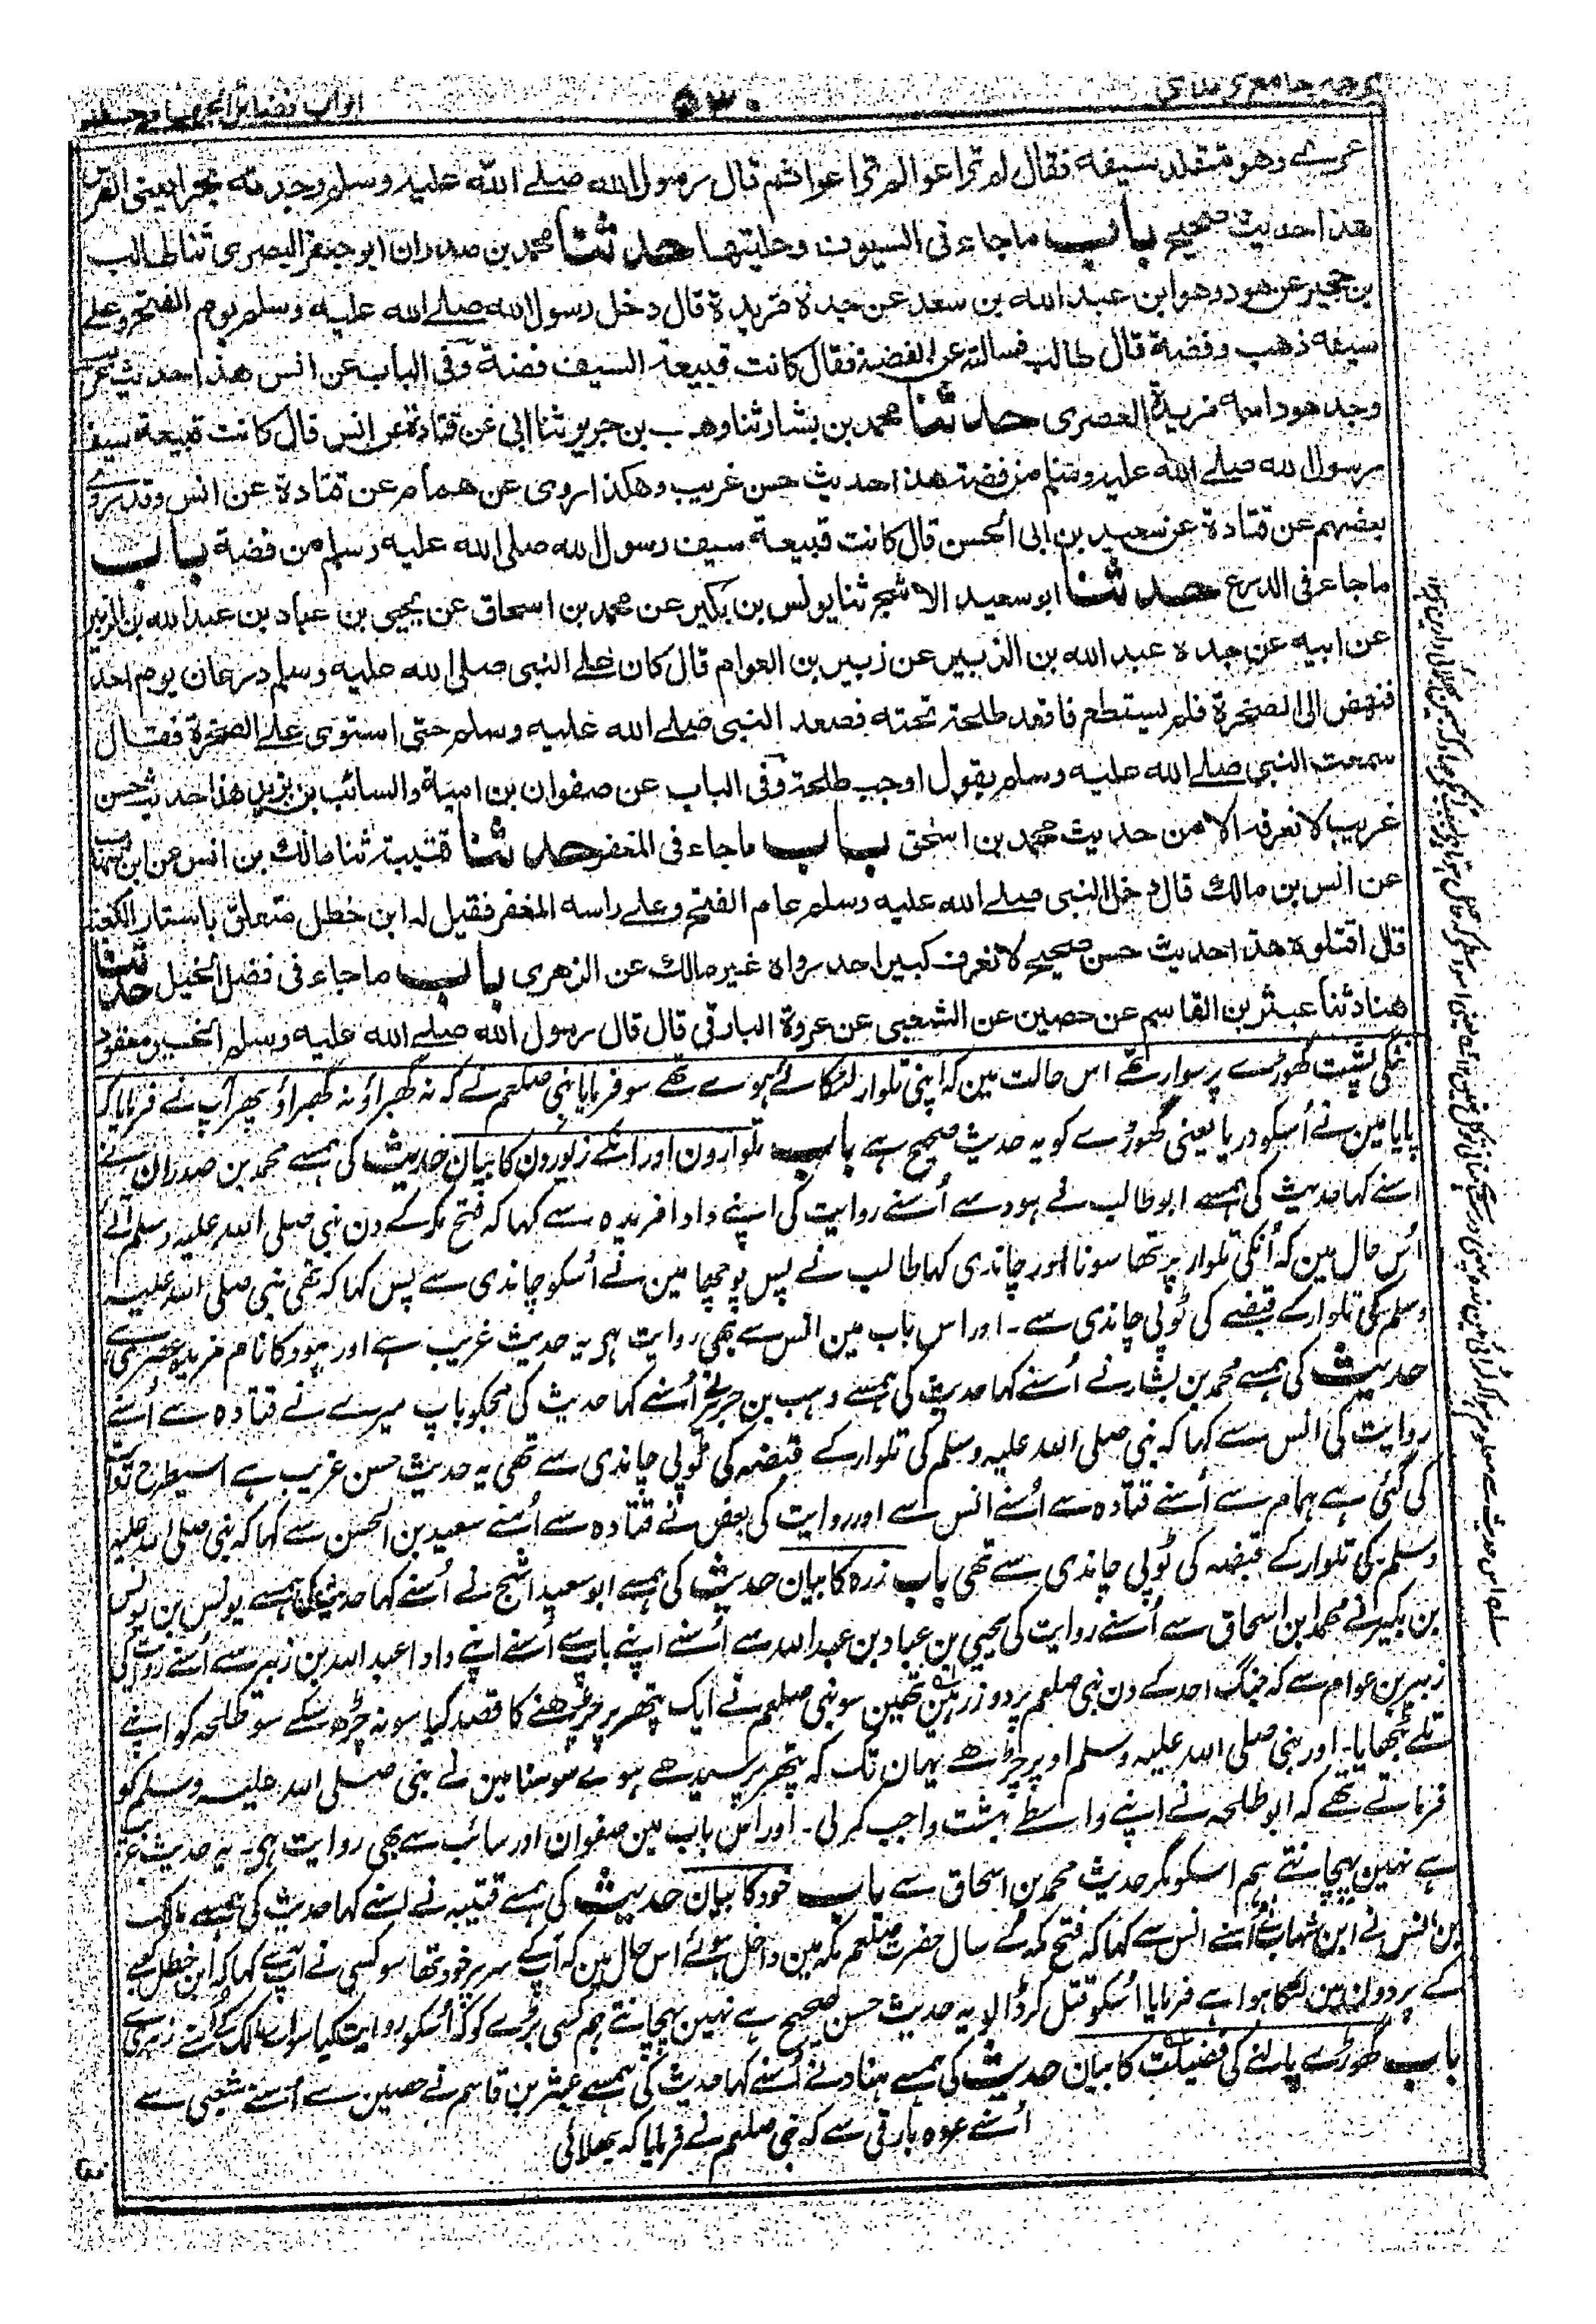 ترجمہ جامع ترمذی
۵۳۰
ابواب فضائل الجهاد
عرى وهو متقلد سيفه فقال لم تراعوا لم تراعوا ثم قال رسول الله صلے الله عليه وسلم وجدته بحرا يعنى الفرس
هذا حديث صحيح باب ماجاء فى السيوف وحليتها حدثنا محمد بن صدران ابو جعفر البصرى ثنا طالب
بن حجير عن هود وهو ابن عبد الله بن سعد عن جده مزيدة قال دخل رسول الله صلے الله عليه وسلم يوم الفتح وعلے
سيفه ذهب وفضة قال طالب فسالته عن الفضة فقال كانت قبيعة السيف فضة وفى الباب عن انس هذا حديث غريب
وجد هود اسمه مزيدة العصرى حدثنا محمد بن بشار ثنا وهب بن جرير ثنا ابى عن قتادة عن انس قال كانت قبيعة سيف
رسول الله صلے الله عليه وسلم من فضة هذا حديث حسن غريب وهكذا روى عن همام عن قتادة عن انس وقد روے
بعضهم عن قتادة عن سعيد بن ابى الحسن قال كانت قبيعة سيف رسول الله صلى الله عليه وسلم من فضة باب
ماجاء فى الدرع حدثنا ابو سعيد الاشج ثنا يونس بن بكير عن محمد بن اسحاق عن يحيى بن عباد بن عبد الله بن الزبير
عن ابيه عن جده عبد الله بن الزبير عن زبير بن العوام قال كان علے النبى صلى الله عليه وسلم درعان يوم احد
فنهض الى الصخرة فلم يستطع فاقعد طلحة تحته فصعد النبى صلے الله عليه وسلم حتى استوى علے الصخرة فقال
سمعت النبى صلے الله عليه وسلم يقول اوجب طلحة وفى الباب عن صفوان بن امية والسائب بن يزيد هذا حديث حسن
غريب لا نعرفه الا من حديث محمد بن اسحٰق باب ماجاء فى المغفر حدثنا قتيبة ثنا مالك بن انس عن ابن شهاب
عن انس بن مالك قال دخل النبى صلے الله عليه وسلم عام الفتح وعلے راسه المغفر فقيل له ابن خطل متعلق باستار الكعبة
قال اقتلوه هذا حديث حسن صحيح لا نعرف كبير احد رواه غير مالك عن الزهرى باب ماجاء فى فضل الخيل حدثنا
هناد ثنا عبثر بن القاسم عن حصين عن الشعبى عن عروة البارقى قال قال رسول الله صلے الله عليه وسلم الخير معقود
ننگی پشت گھوڑے پر سوار تھے اس حالت مین کہ اپنی تلوار لٹکائے ہوے تھے سو فرمایا نبی صلعم نے کہ نہ گھبراؤ نہ گھبراؤ پھر آپ نے فرمایا کہ
پایا مین نے اُسکو دریا یعنی گھوڑے کو یہ حدیث صحیح ہے باب تلوارون اور اُنکے زیورون کا بیان حدیث کی ہمسے محمد بن صدران نے
اُسنے کہا حدیث کی ہمسے ابو طالب نے ہود سے اُسنے روایت کی اپنے دادا فریدہ سے کہا کہ فتح مکہ کے دن نبی صلی اللہ علیہ وسلم آئے
اُس حال مین کہ اُنکی تلوار پر تھا سونا اور چاندی کہا طالب نے پس پوچھا مین نے اُسکو چاندی سے پس کہا کہ تھی نبی صلی اللہ علیہ
وسلم کی تلوار کے قبضے کی ٹوپی چاندی سے۔ اور اس باب مین انس سے بھی روایت ہی یہ حدیث غریب ہے اور ہود کا نام مزیدہ عصری ہے
حدیث کی ہمسے محمد بن بشار نے اُسنے کہا حدیث کی ہمسے وہب بن جریر نے اُسنے کہا حدیث کی مجکو باپ میرے نے قتادہ سے اُسنے
روایت کی انس سے کہا کہ نبی صلی اللہ علیہ وسلم کی تلوار کے قبضہ کی ٹوپی چاندی سے تھی یہ حدیث حسن غریب ہے اسیطرح روایت
کی گئی ہے ہمام سے اُسنے قتادہ سے اُسنے انس سے اور روایت کی بعض نے قتادہ سے اُسنے سعید بن الحسن سے کہا کہ نبی صلی اللہ علیہ
وسلم کی تلوار کے قبضہ کی ٹوپی چاندی سے تھی باب زرہ کا بیان حدیث کی ہمسے ابو سعید اشج نے اُسنے کہا حدیث کی ہمسے یونس بن یونس
بن بکیر نے محمد ابن اسحاق سے اُسنے روایت کی یحیی بن عباد بن عبد اللہ سے اُسنے اپنے باپ سے اُسنے اپنے دادا عبد اللہ بن زبیر سے اُسنے روایت کی
زبیر بن عوام سے کہ جنگ احد کے دن نبی صلعم پر دو زرہین تھین سو نبی صلعم نے ایک پتھر پر چڑھنے کا قصد کیا سو نہ چڑھ سکے سو طلحہ کو اپنے
تلے بٹھایا۔ اور نبی صلی اللہ علیہ وسلم اوپر چڑھے یہان تک کہ پتھر پر سیدھے ہوے سو سنا مین نے نبی صلی اللہ علیہ وسلم کو
فرماتے تھے کہ ابو طلحہ نے اپنے واسطے بہشت واجب کر لی۔ اور اس باب مین صفوان اور سائب سے بھی روایت ہی۔ یہ حدیث غریب
ہے نہین پہچانتے ہم اسکو مگر حدیث محمد بن اسحاق سے باب خود کا بیان حدیث کی ہمسے قتیبہ نے اُسنے کہا حدیث کی ہمسے مالک
بن انس نے ابن شہاب سے اُسنے انس سے کہا کہ فتح مکہ کے سال حضرت صلعم مکہ مین داخل ہوئے اس حال مین کہ آپکے سر پر خود تھا سو کسی نے آپسے کہا کہ ابن خطل کعبے
کے پردون مین لٹکا ہوا ہے فرمایا اُسکو قتل کر ڈالو یہ حدیث حسن صحیح ہے نہین پہچانتے ہم کسی بڑے کو کہ اُسکو روایت کیا سواے مالک کے اُسنے زہری سے
باب گھوڑے پالنے کی فضیلت کا بیان حدیث کی ہمسے ہناد نے اُسنے کہا حدیث کی ہمسے عبثر بن قاسم نے حصین سے اُسنے شعبی سے
اُسنے عروہ بارقی سے کہ نبی صلعم نے فرمایا کہ بھلائی